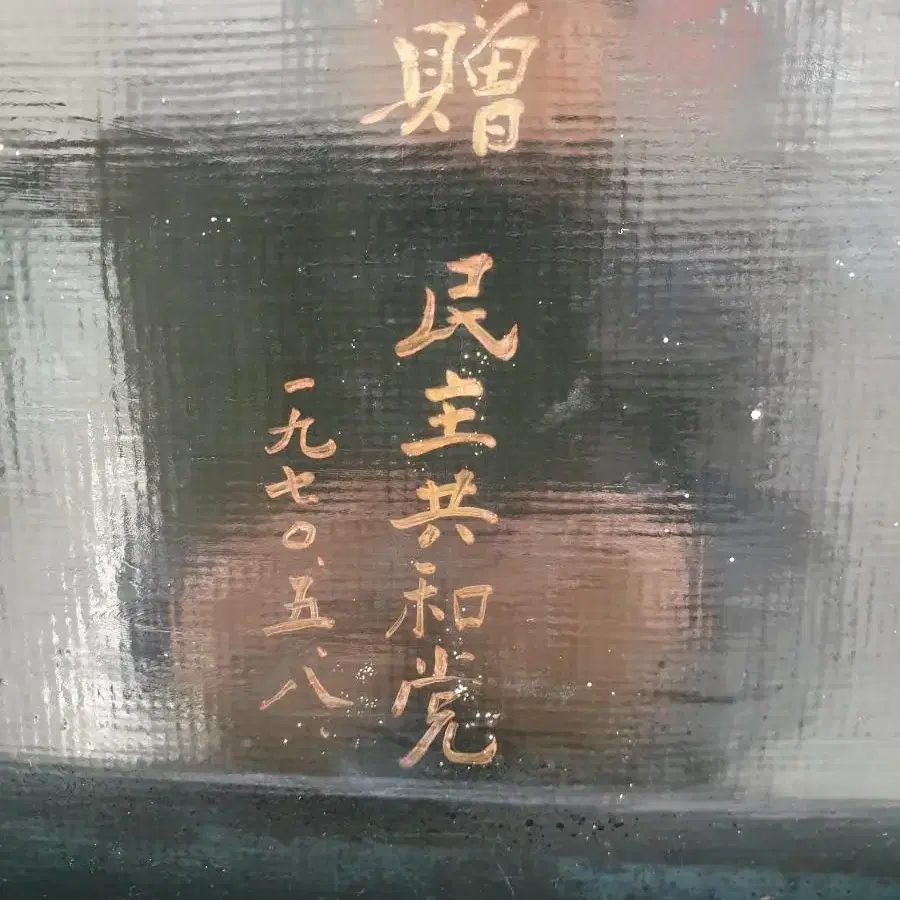 贈
民主共和党
一九七〇、五、八、